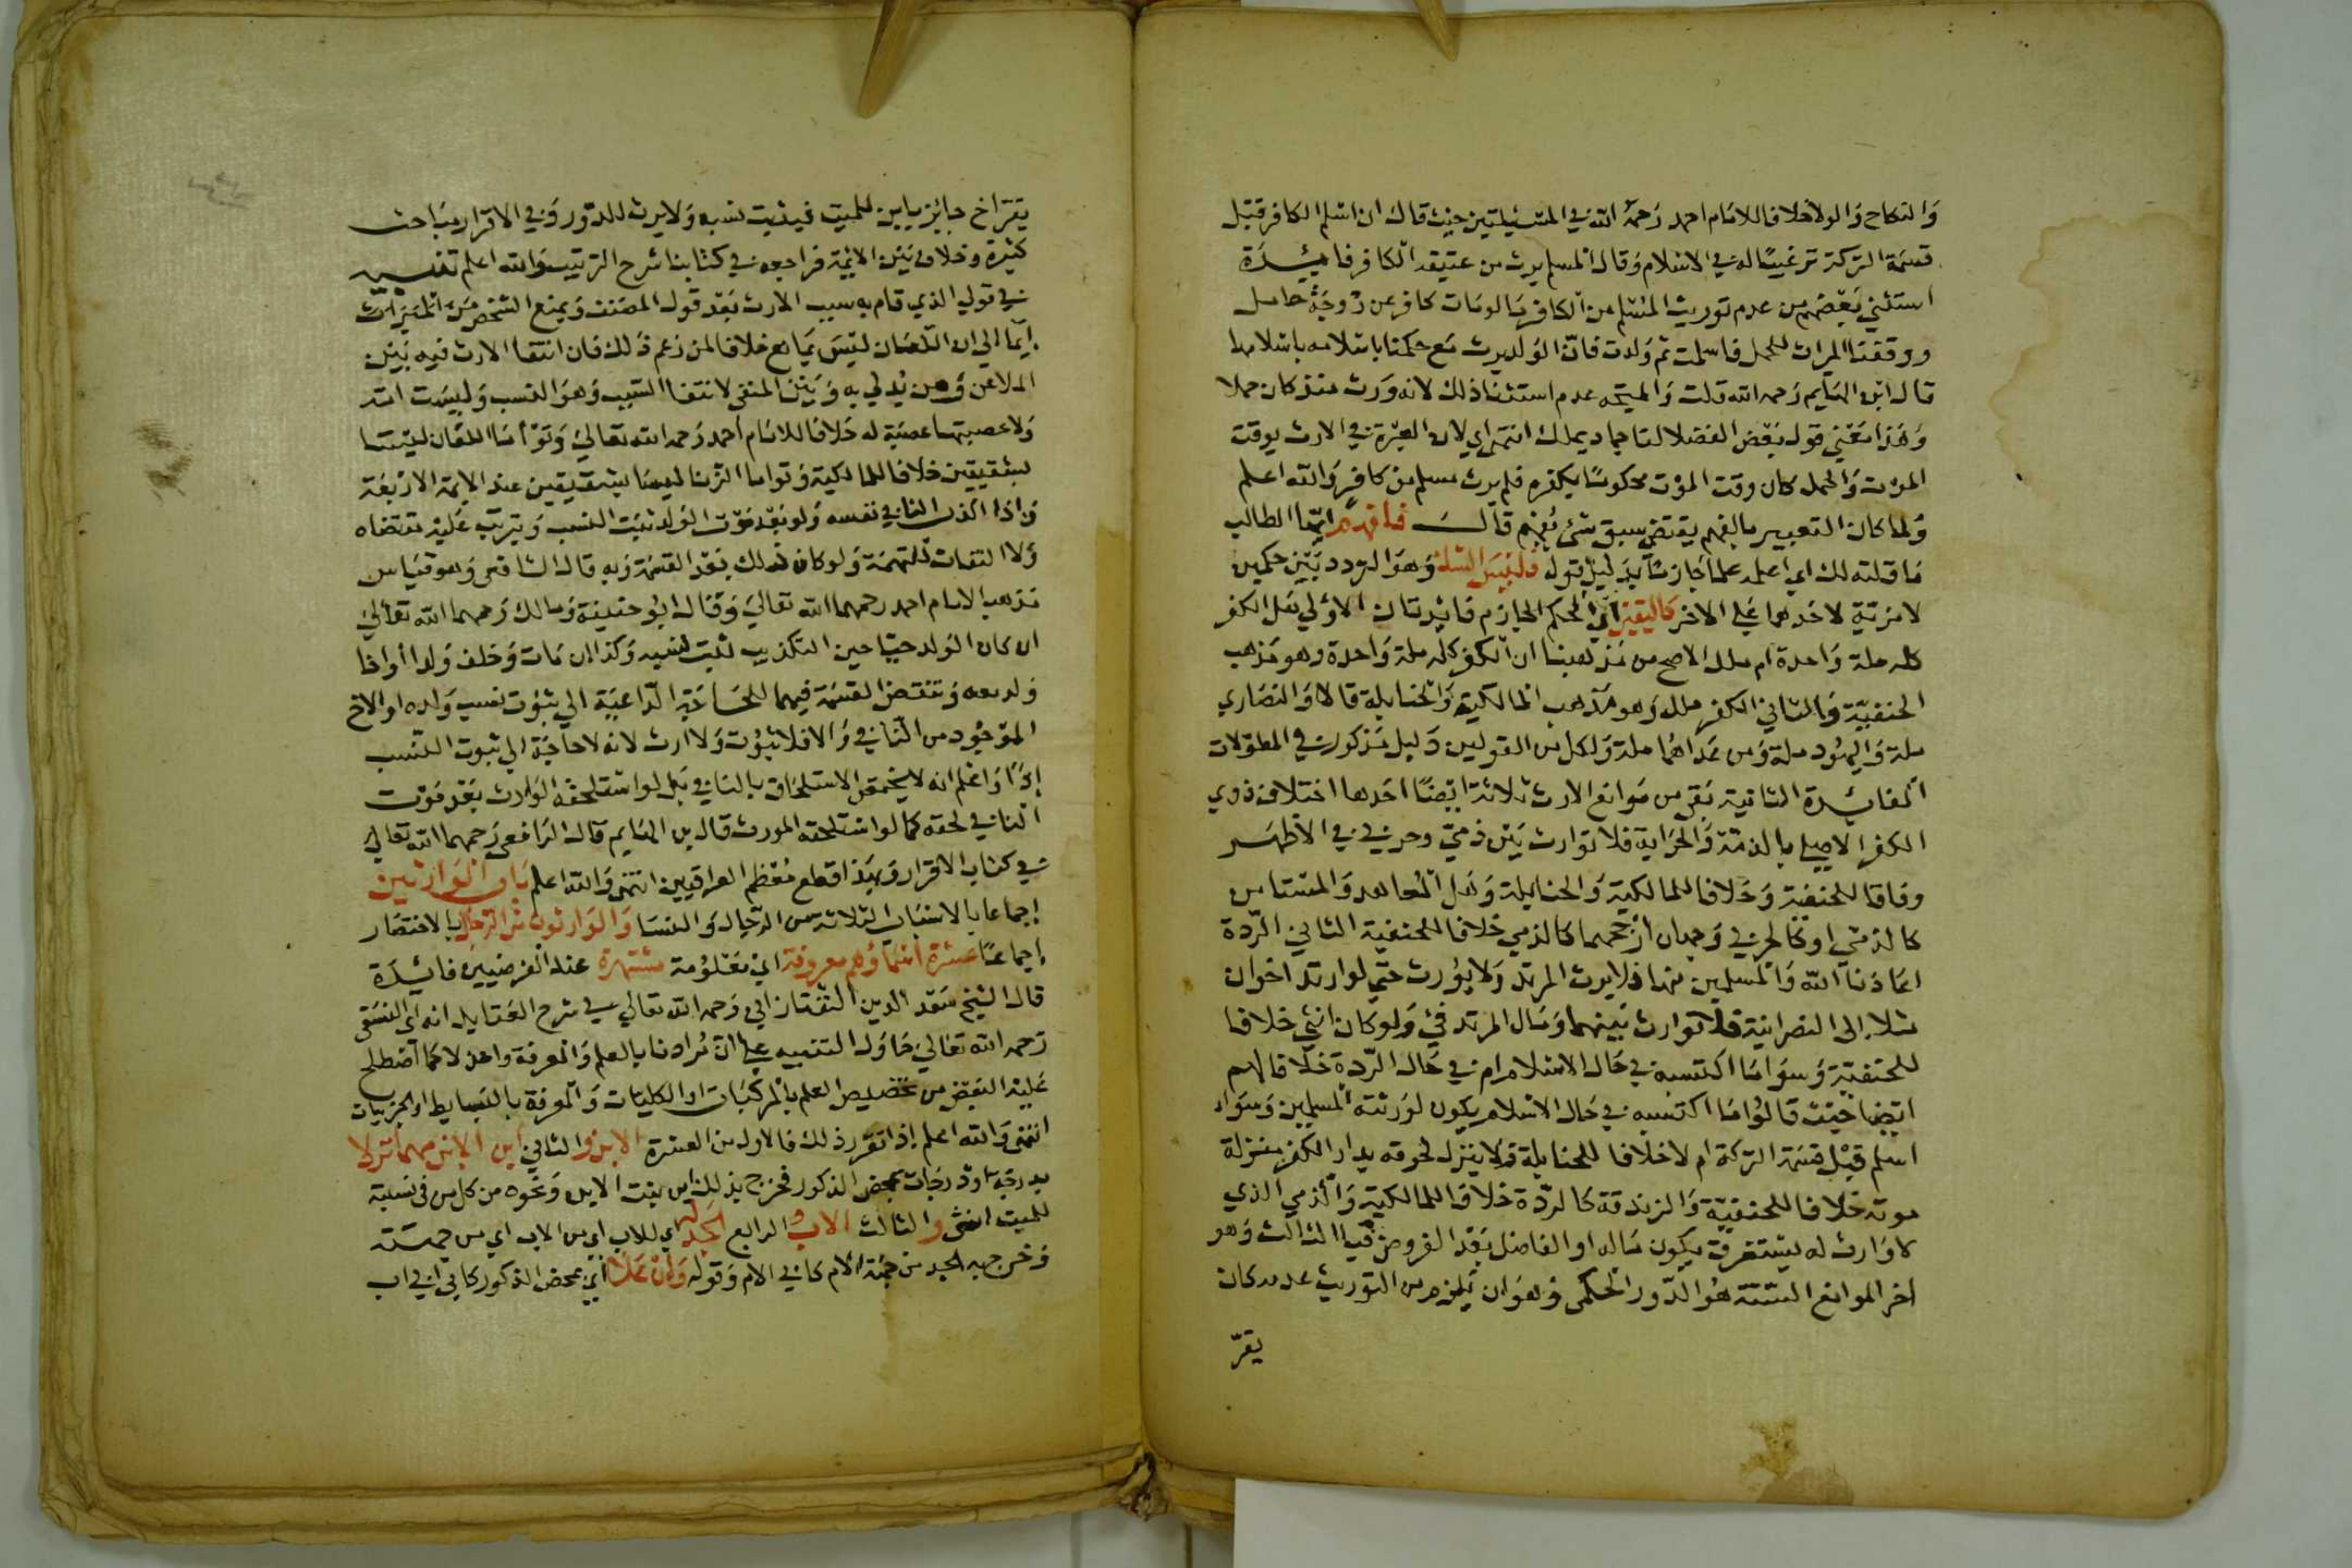 والنكاح والولا خلافا للامام احمد رحمه الله في المسئلتين حيث قال ان اسلم الكافر قبل
قسمة التركة ترغيبا له في الاسلام وقال المسلم يرث من عتيقه الكافر فايدة
استثنى بعضهم من عدم توريث المسلم من الكافر ما لو مات كافر عن زوجة حامل
ووقفنا الميراث للحمل فاسلمت ثم ولدت فان الولد يرث مع حكمنا باسلامه باسلامها
قال ابن الهايم رحمه الله قلت والمتجه عدم استثنا ذلك لانه ورث منذ كان حملا
وهذا معنى قول بعض الفضلا لنا جماد يملك انتهى اي لان العبرة في الارث بوقت
الموت والحمل كان وقت الموت محكوما بكفره فلم يرث مسلم من كافر والله اعلم
ولما كان التعبير بالفهم يقتضي سبق شئ يفهم قال فافهم ايها الطالب
ما قلته لك اي اعلمه علما جازما بدليل قوله فليس الشك وهو التردد بين حكمين
لا مزية لاحدهما على الاخر كاليقين اي الحكم الجازم فائدتان الاولى هل الكفر
كله ملة واحدة ام ملل الاصح من مذهبنا ان الكفر كله ملة واحدة وهو مذهب
الحنفية والثاني الكفر ملل وهو مذهب المالكية والحنابلة قالا والنصاري
ملة واليهود ملة ومن عداهما ملة ولكل من القولين دليل مذكور في المطولات
الفايدة الثانية بقي من موانع الارث ثلاثة ايضا احدها اختلاف ذوي
الكفر الاصلي بالذمة والحرابة فلا توارث بين ذمي وحربي في الاظهر
وفاقا للحنفية وخلافا للمالكية والحنابلة وهل المعاهد والمستامن
كالذمي او كالحربي وجهان ارجحهما كالذمي خلافا للحنفية الثاني الردة
اعاذنا الله والمسلمين منها فلا يرث المرتد ولا يورث حتى لو ارتد اخوان
مثلا الى النصرانية فلا توارث بينهما ومال المرتد فئ ولو كان انثى خلافا
للحنفية وسوا ما اكتسبه في حال الاسلام ام في حال الردة خلافا لهم
ايضا حيث قالوا ما اكتسبه في حال الاسلام يكون لورثته المسلمين وسوا
اسلم قبل قسمة التركة ام لا خلافا للحنابلة ولا ينزل لحوقه بدار الكفر منزلة
موته خلافا للحنفية والزندقة كالردة خلافا للمالكية والذمي الذي
لا وارث له يستغرق يكون ماله او الفاضل بعد الفروض فيا الثالث وهو
اخر الموانع الستة هو الدور الحكمي وهو ان يلزم من التوريث عدمه كان
يقر
يقر اخ جايز بابن للميت فيثبت نسبه ولا يرث للدور وفي الاقرار مباحث
كثيرة وخلاف بين الايمة فراجعه في كتابنا شرح الترتيب والله اعلم تنبيه
في قولي الذي قام به سبب الارث بعد قول المصنف ويمنع الشخص من الميراث
ايما الى ان اللعان ليس بمانع خلافا لمن زعم ذلك فان انتفا الارث فيه بين
الملاعن ومن يدلي به وبين المنفي لانتفا السبب وهو النسب وليست امه
ولا عصبتها عصبة له خلافا للامام احمد رحمه الله تعالى وتوأما اللعان ليستا
بشقيقين خلافا للمالكية وتواما الزنا ليسا بشقيقين عند الايمة الاربعة
واذا اكذب النافي نفسه ولو بعد موت الولد ثبت النسب ويترتب عليه مقتضاه
ولا التفات للتهمة ولو كان ذلك بعد القسمة وبه قال الشافعي وهو قياس
مذهب الامام احمد رحمهما الله تعالى وقال ابو حنيفة ومالك رحمهما الله تعالى
ان كان الولد حيا حين التكذيب ثبت نسبه وكذا ان مات وخلف ولدا او اخا
ولد معه وتنقض القسمة فيهما للحاجة الداعية الى ثبوت نسب ولده او الاخ
الموجود من النافي والا فلا ثبوت ولا ارث لانه لا حاجة الى ثبوت النسب
اذا واعلم انه لا يختص الاستلحاق بالنافي بل لو استلحقه الوارث بعد موت
النافي لحقه كما لو استلحقه المورث قال بن الهايم قال الرافعي رحمهما الله تعالى
في كتاب الاقرار وبهذا قطع معظم العراقيين انتهى والله اعلم باب الوارثين
اجماعا بالاسباب الثلاثة من الرجال والنسا والوارثون من الرجال بالاختصار
اجماعا عشرة اسماؤهم معروفة اي معلومة مشتهرة عند الفرضيين فائدة
قال الشيخ سعد الدين التفتازاني رحمه الله تعالى في شرح العقايد انه اي النسفي
رحمه الله تعالى حاول التنبيه على ان مرادنا بالعلم والمعرفة واحد لا كما اصطلح
عليه البعض من تخصيص العلم بالمركبات او الكليات والمعرفة بالبسايط او الجزييات
انتهى والله اعلم اذا تقرر ذلك فالاول من العشرة الابن والثاني ابن الابن مهما نزلا
بدرجة او درجات بمحض الذكور فخرج بذلك ابن بنت الابن ونحوه من كل من في نسبته
للميت انثى والثالث الاب والرابع الجد له اي للاب اي من الاب اي من جهته
وخرج به الجد من جهة الام كابي الام وقوله وان علا اي بمحض الذكور كابي ابي اب